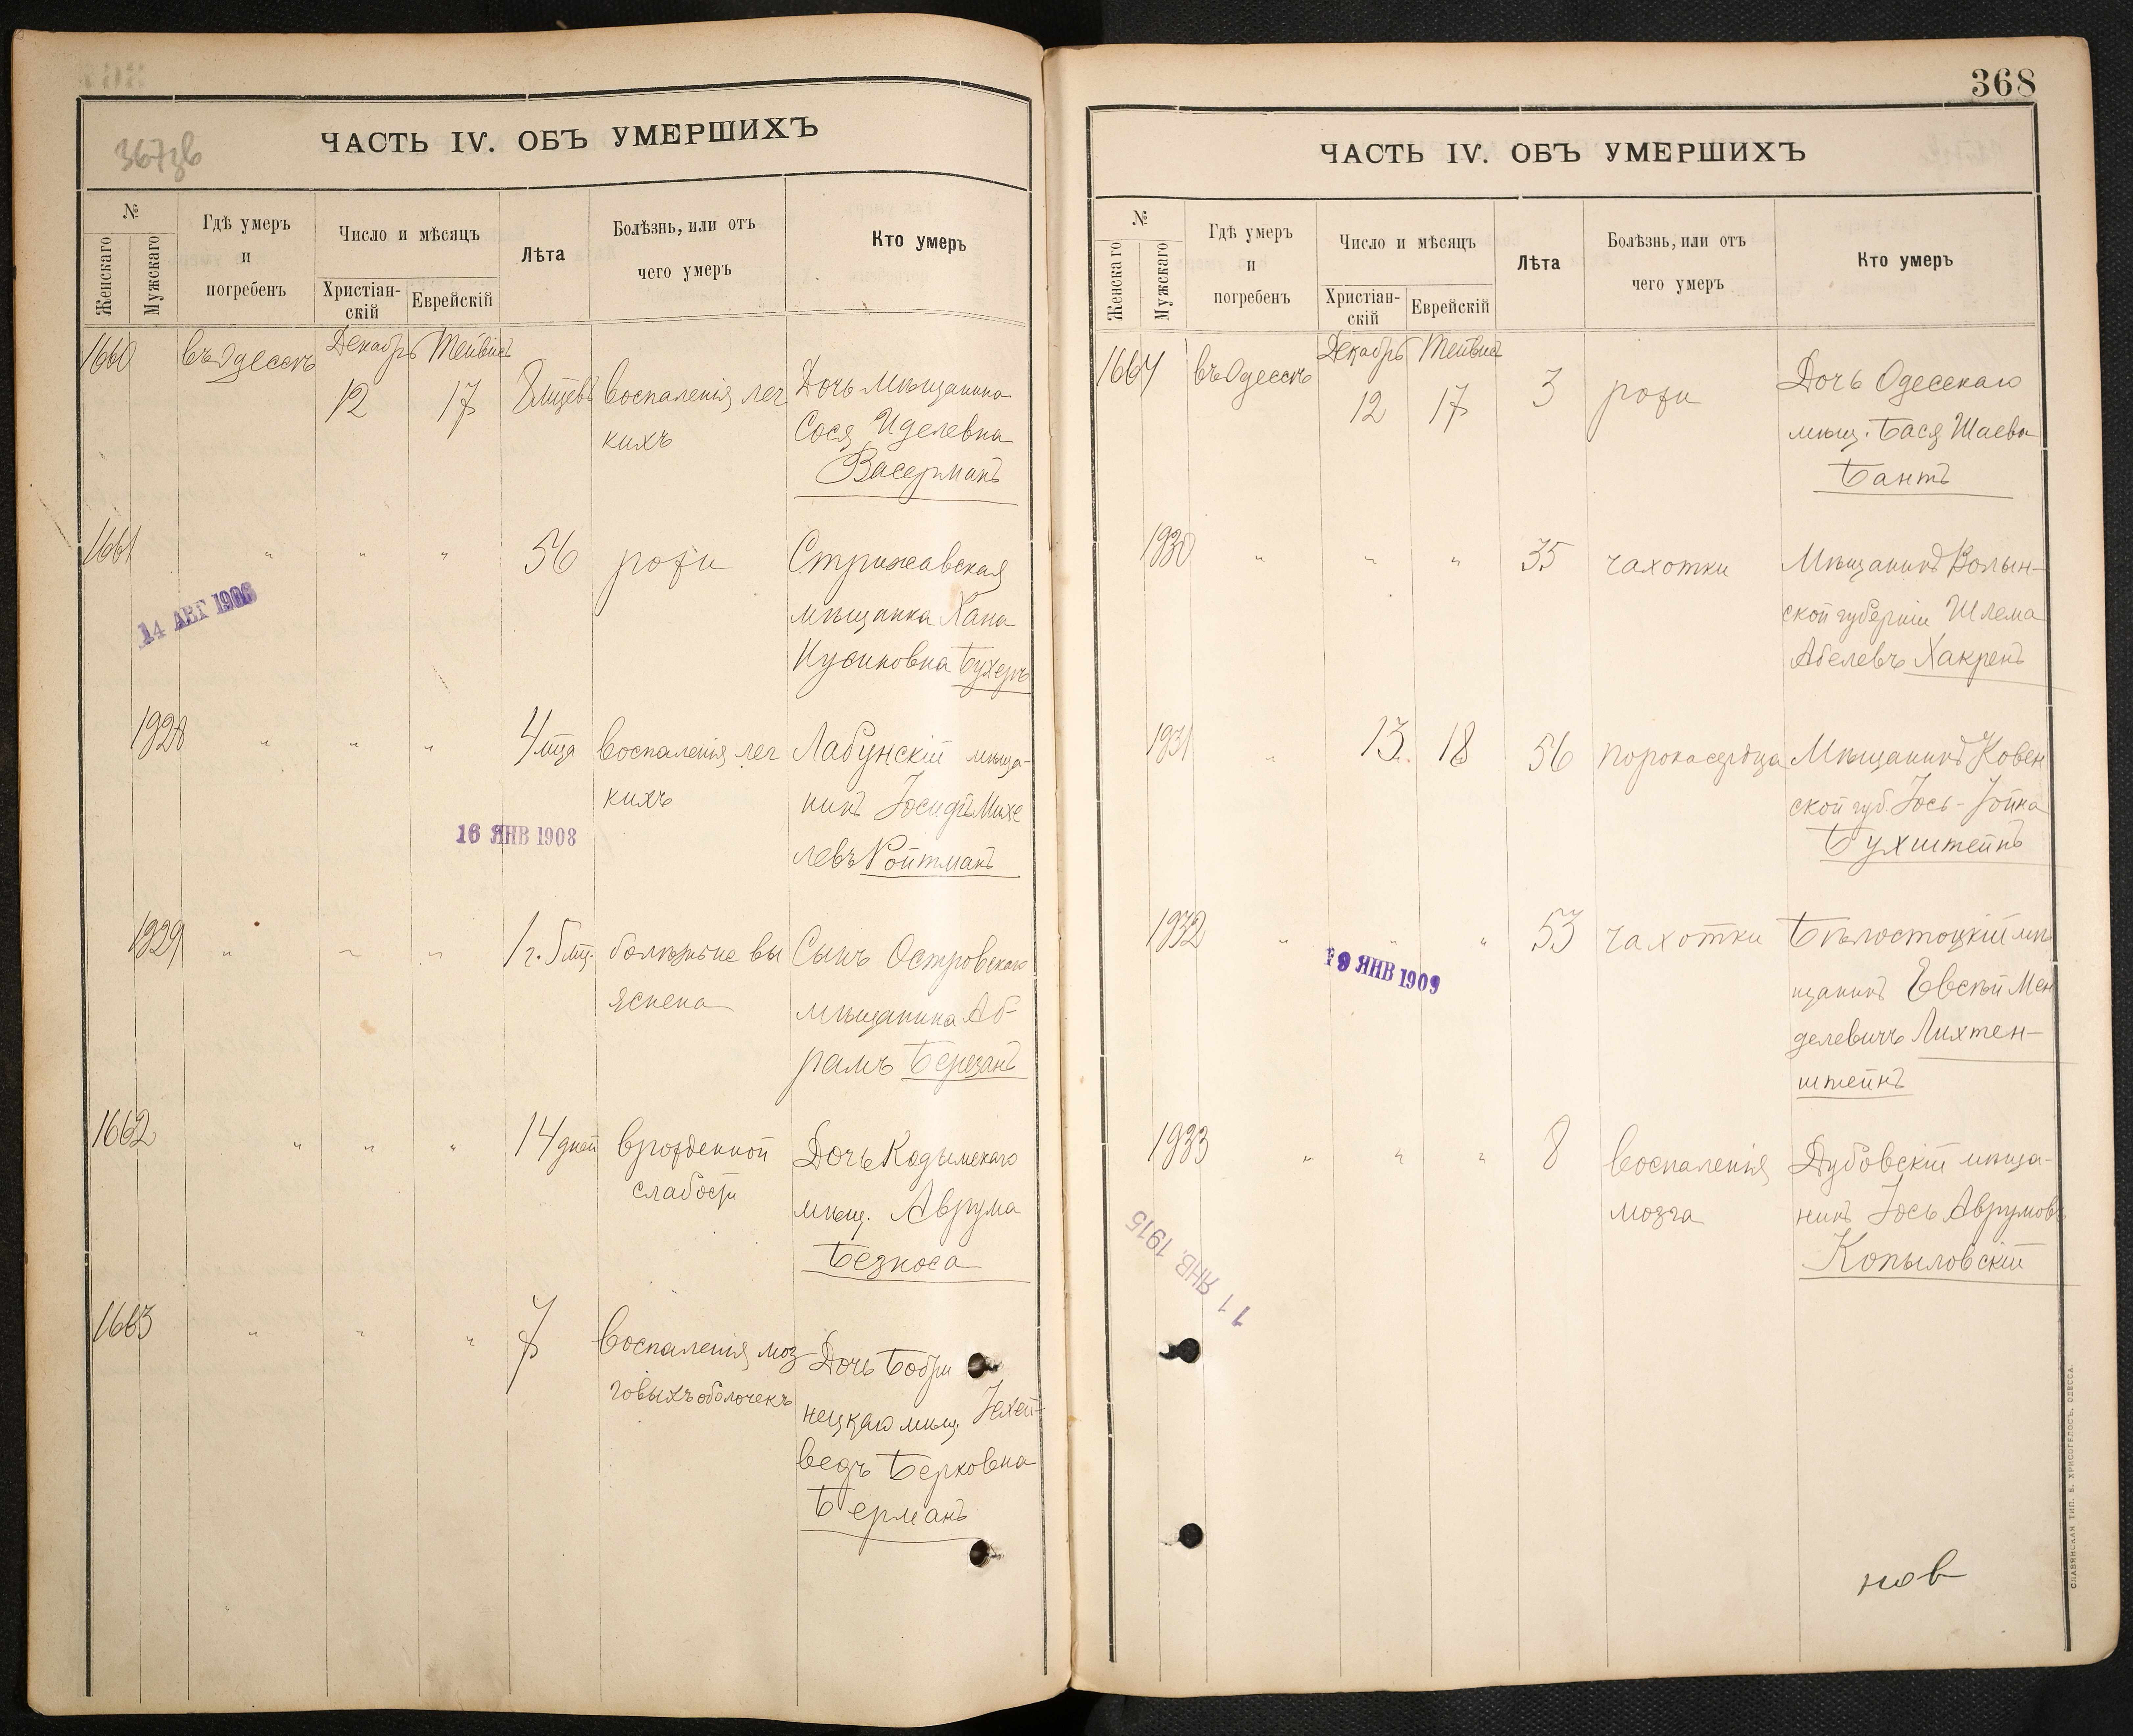 367зв
ЧАСТЬ IV. ОБЪ УМЕРШИХЪ
№
Женскаго
Мужскаго
Гдѣ умеръ
и
погребенъ
Число и мѣсяцъ
Христіан-
скій
Еврейскій
Лѣта
Болѣзнь, или отъ
чего умеръ
Кто умеръ
1660 въ Одессѣ Декабрь Тейвисъ
12 17 8 мцевъ воспаленія лег
кихъ
Дочь мѣщанина
Сося Иделевна
Васерманъ
1661 " " " 56 рожи Стрижавская
мѣщанка Хана
Нусиновна Бухеръ
14 АВГ 1906
1928 " " " 4 мца воспаленія лег
кихъ
Лабунскій мѣща-
нинъ Іосифъ Михе
левъ Ройтманъ
16 ЯНВ 1908
1929 " " " 1 г. 5 мц. болѣзнь не вы
яснена
Сынъ Островскаго
мѣщанина Аб-
рамъ Березанъ
1662 " " " 14 дней врожденной
слабости
Дочь Кодымскаго
мѣщ. Аврума
Безноса
1663 " " " 7 воспаленія моз
говыхъ оболочекъ
Дочь Бобри
нецкаго мѣщ. Іохей-
ведъ Берковна
Берманъ
368
ЧАСТЬ IV. ОБЪ УМЕРШИХЪ
№
Женскаго
Мужскаго
Гдѣ умеръ
и
погребенъ
Число и мѣсяцъ
Христіан-
скій
Еврейскій
Лѣта
Болѣзнь, или отъ
чего умеръ
Кто умеръ
1664 въ Одессѣ Декабрь Тейвисъ
12 17 3 рожи
Дочь Одесскаго
мѣщ. Бася Шаевна
Бантъ
1930 " " " 35 чахотки Мѣщанинъ Волын-
ской губерніи Шлема
Абелевъ Хакренъ
1931 " 13 18 56 порока сердца Мѣщанинъ Ковен
ской губ. Іось-Іойна
Бухштейнъ
1932 " " " 53 чахотки Бѣлостоцкій мѣ
щанинъ Евсѣй Мен
делевичъ Лихтен-
штейнъ
19 ЯНВ 1909
1933 " " " 8 воспаленія
мозга
Дубовскій мѣща-
нинъ Іось Аврумовъ
Копыловскій
11 ЯНВ. 1915
нов
СЛАВЯНСКАЯ ТИП. Е. ХРИСОГЕЛОСЪ, ОДЕССА.